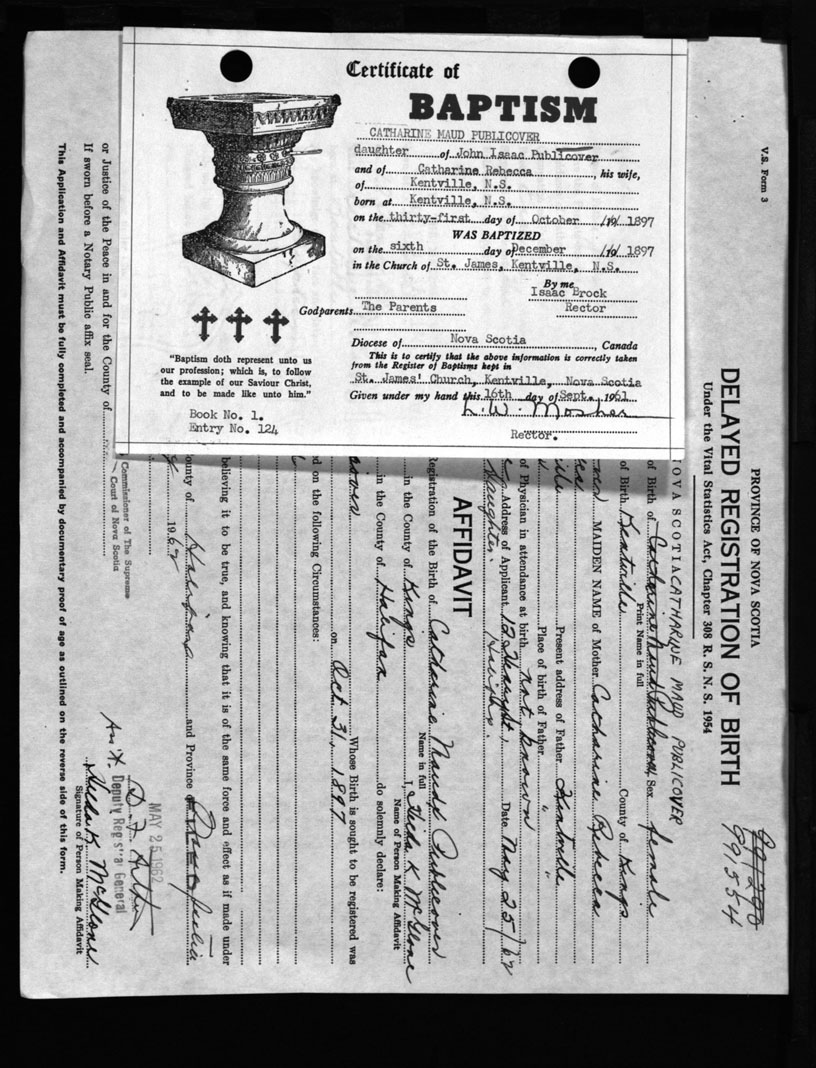 Certificate of
BAPTISM
CATHARINE MAUD PUBLICOVER
daughter of John Isaac Publicover
and of Catharine Rebecca, his wife,
of Kentville, N.S.
born at Kentville, N.S.
on the thirty-first day of October /19/ 1897
WAS BAPTIZED
on the sixth day of December /19/ 1897
in the Church of St. James, Kentville, N.S.
By me
Isaac Brock
Godparents The Parents Rector
Diocese of Nova Scotia, Canada
This is to certify that the above information is correctly taken
from the Register of Baptisms kept in
St. James' Church, Kentville, Nova Scotia
Given under my hand this 16th day of Sept. 1961
L. W. Mosher
Rector.
"Baptism doth represent unto us
our profession; which is, to follow
the example of our Saviour Christ,
and to be made like unto him."
Book No. 1.
Entry No. 124
V.S. Form 3
PROVINCE OF NOVA SCOTIA
DELAYED REGISTRATION OF BIRTH
Under the Vital Statistics Act, Chapter 308 R. S. N. S. 1954
991554
NOVA SCOTIA CATHARINE MAUD PUBLICOVER
of Birth of Catharine Maud Publicover Sex female
Print Name in full
of Birth Kentville County of Kings
MAIDEN NAME of Mother Catharine Rebecca
Present address of Father Kentville
Place of birth of Father " "
of Physician in attendance at birth not known
Address of Applicant Date May 25/62
Daughter.
AFFIDAVIT
Registration of the Birth of Catharine Maude Publicover
Name in full
in the County of Kings I, Hilda K McGlone
Name of Person Making Affidavit
in the County of Halifax do solemnly declare:
Whose Birth is sought to be registered was
on Oct 31, 1897
d on the following Circumstances:
believing it to be true, and knowing that it is of the same force and effect as if made under
ounty of Halifax and Province of Nova Scotia
1962
MAY 25 1962
Deputy Registrar General
Commissioner of The Supreme
Court of Nova Scotia
Hilda K McGlone
Signature of Person Making Affidavit
or Justice of the Peace in and for the County of
If sworn before a Notary Public affix seal.
This Application and Affidavit must be fully completed and accompanied by documentary proof of age as outlined on the reverse side of this form.